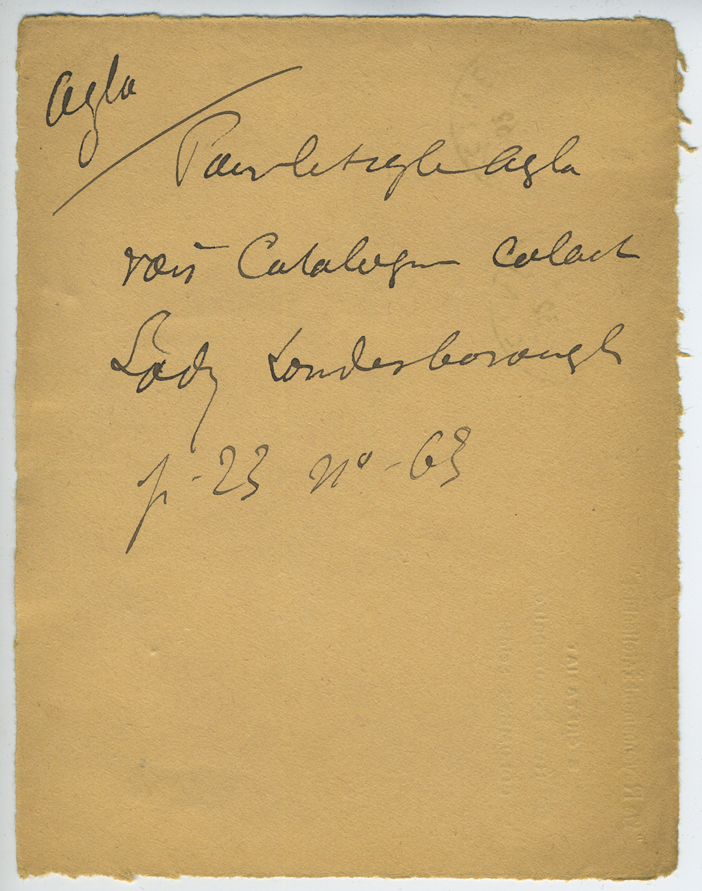 Agla
Pour le sigle Agla
voir Catalogue colect
Lady Londesborough
p. 23 no. 63